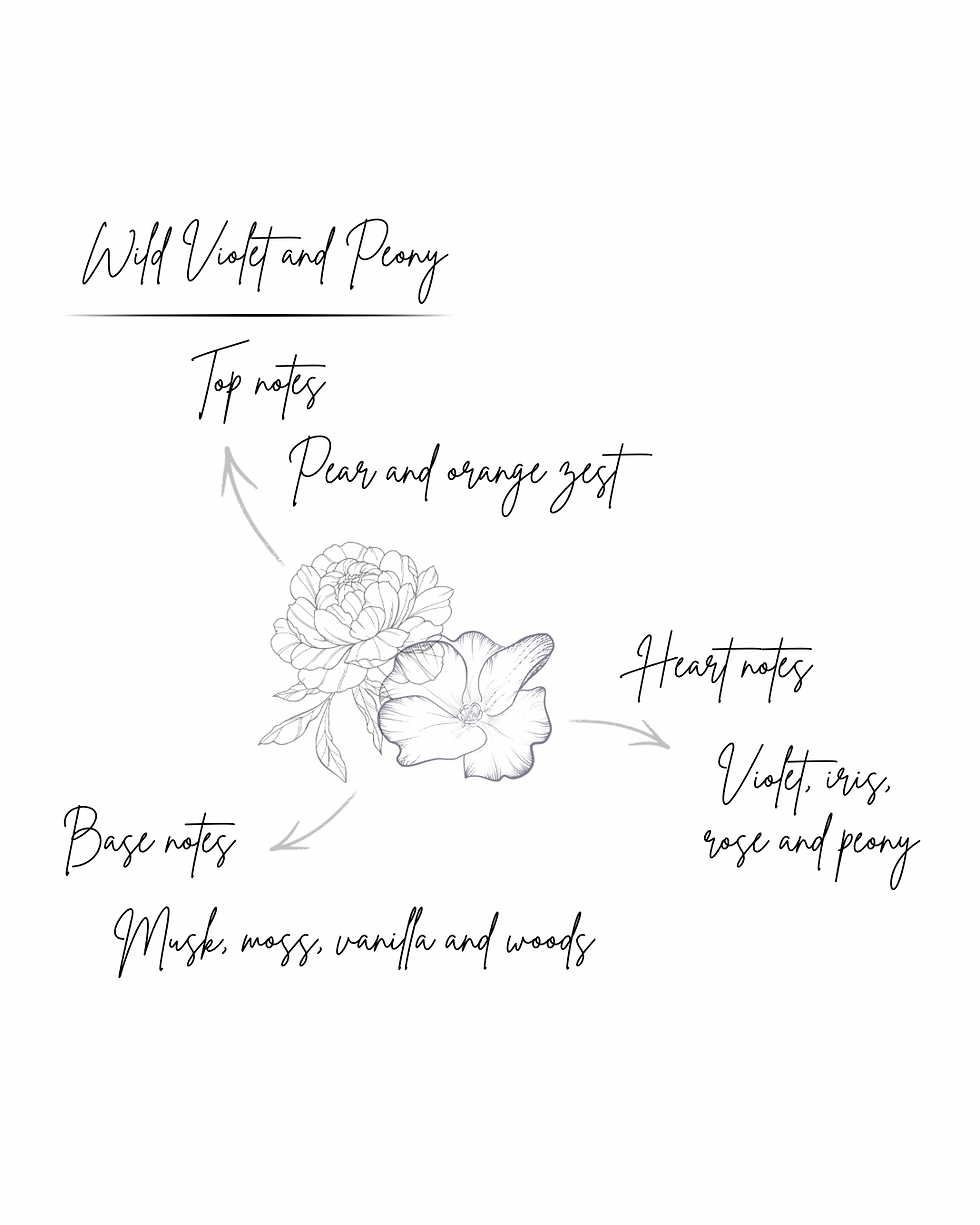 Wild Violet and Peony
Top notes
Pear and orange zest
Heart notes
Violet, iris,
rose and peony
Base notes
Musk, moss, vanilla and woods